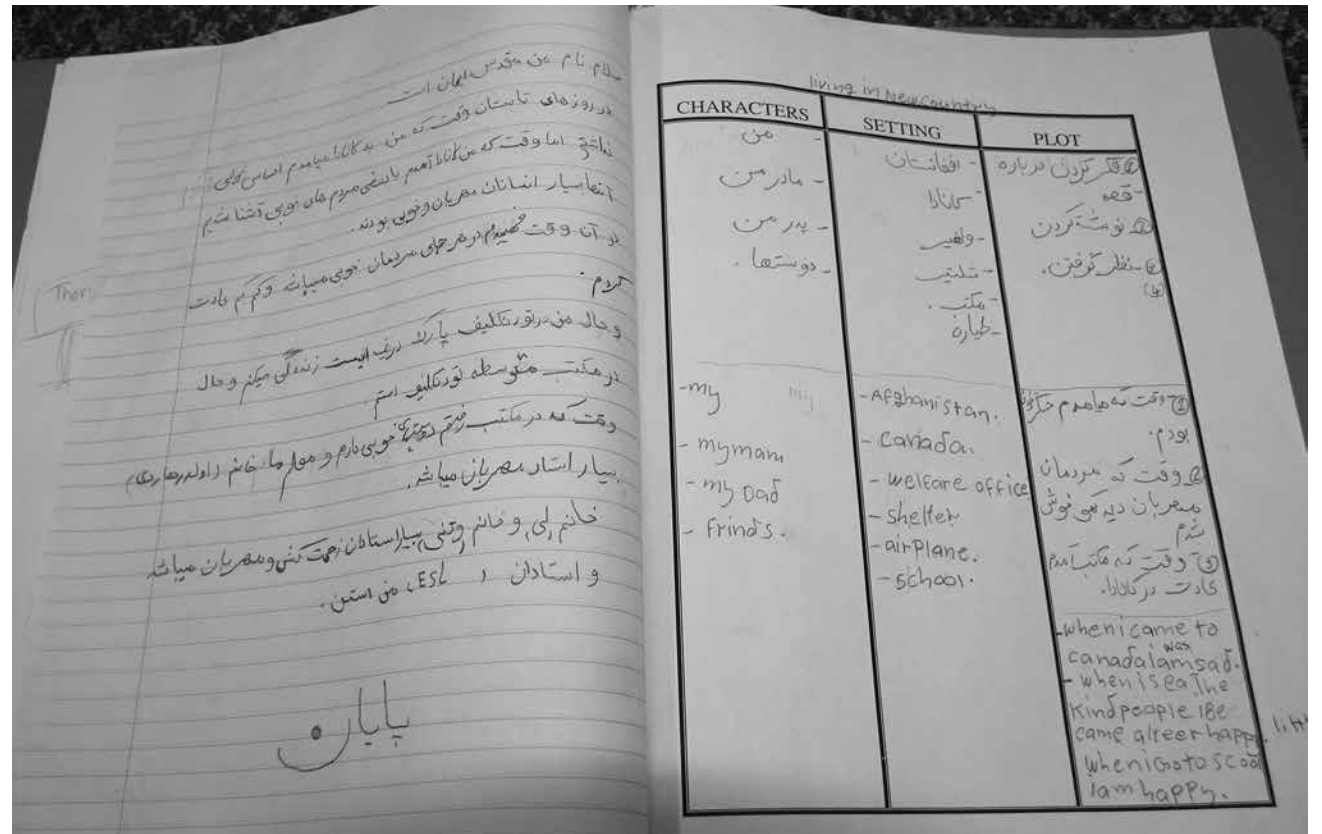 سلام نام من مقدس ایمان است.
در روزهای تابستان وقت که من به کانادا میامدم احساس
نداشتم اما وقت که من کانادا آمدم با بعضی مردم های خوبی آشنا شدیم
آنها بسیار انسانان مهربان و خوبی بودند.
در آن وقت فهمیدم در هر جای مردمان خوبی میباشه وکم کم عادت
کردم.
و حال من در تورنکلیف پارک زندگی میکنم و حال
در مکتب متوسطه تورنکلیف استم.
وقت که در مکتب رفتم دوستهای خوبی دارم و معلم ما خانم
بسیار استاد مهربان میباشه.
خانم لی و خانم بسیار استادان زحمت کش و مهربان میباشه
و استادان ESL من استن.
پایان
living in New Country
CHARACTERS
SETTING
PLOT
- من
- مادر من
- پدر من
- دوستها.
- افغانستان
- کانادا
- ولفیر
- شلتیر
- مکتب.
- طیاره
① فکر کردن درباره
قصه
② نوشته کردن
③ - نظر گرفتن.
(4)
-my
- my mam
- my Dad
- Frinds.
- Afghanistan.
- Canada.
- welfare office
- shelter
- airPlane.
- School.
① وقت که میامدم جگرخون
بودم.
② وقت که مردمان
مهربان دیدم خوش
شدم
③ وقت که مکتب آمدم
عادت در کانادا.
- when i came to
canada I am was sad.
- when i sea The
Kind people i Be
came a leer happy. litt
when i Go to scool
I am happy.